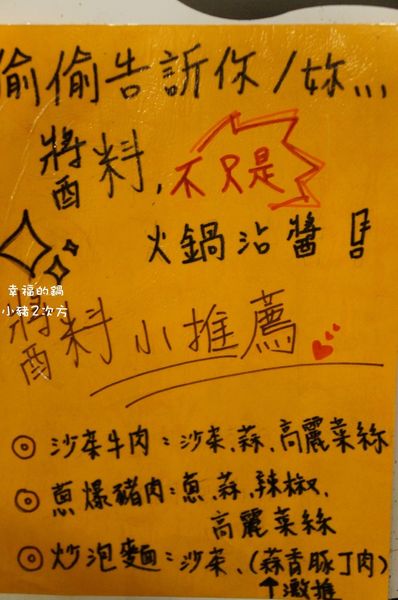 偷偷告訴你/妳...
醬料,不只是
火鍋沾醬!
幸福的鍋
小豬2次方
醬料小推薦
◎沙茶牛肉:沙茶、蒜、高麗菜絲
◎蔥爆豬肉:蔥、蒜、辣椒、
高麗菜絲
◎炒泡麵:沙茶、(蒜香豚丁肉)
↑激推